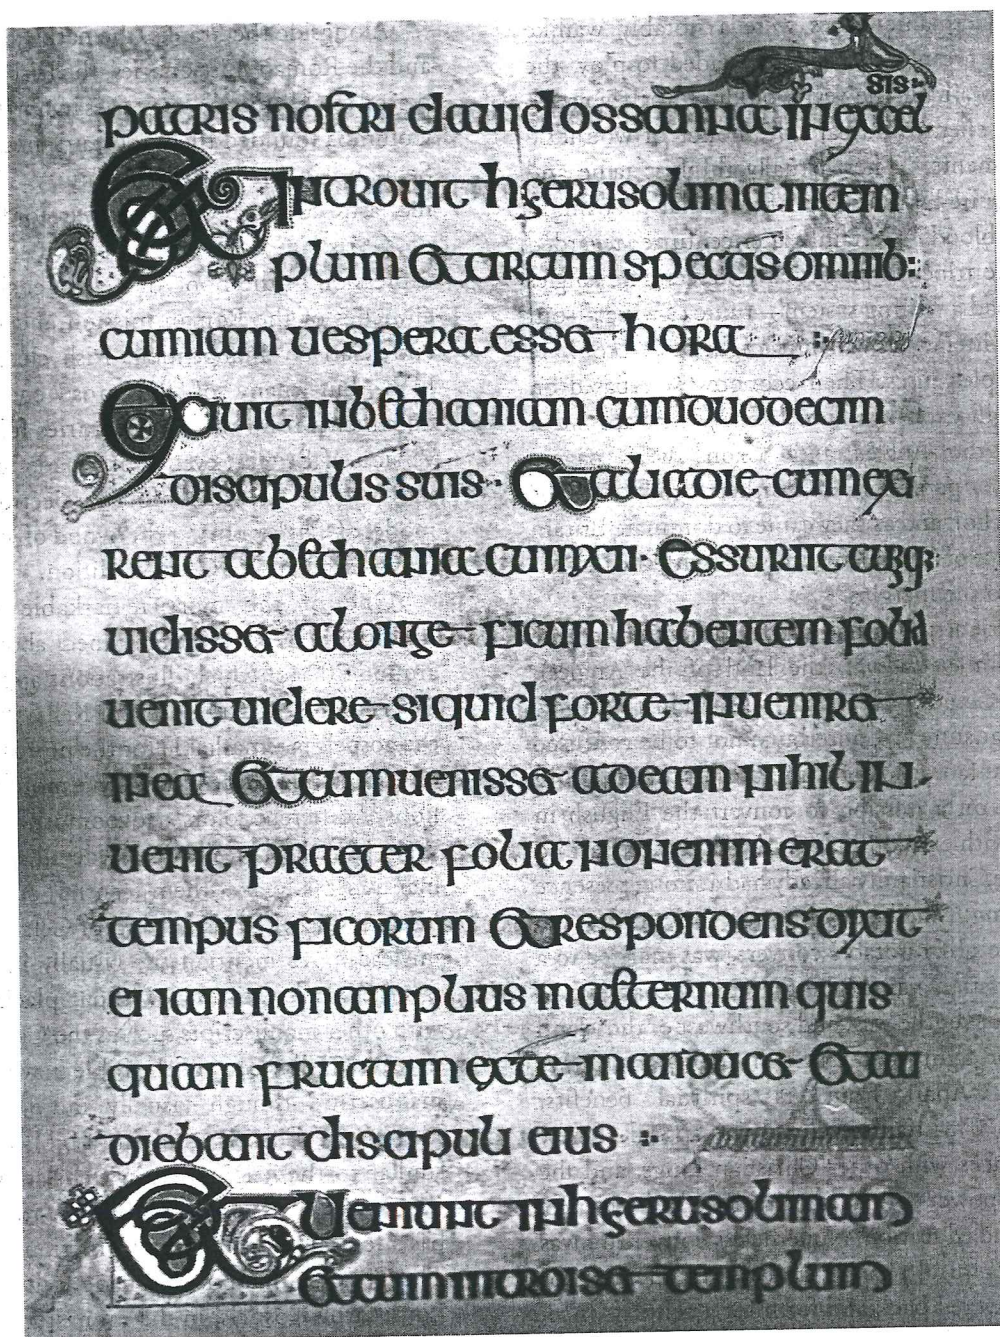 sis:
patris nostri dauid ossanna in excel
Et introiuit hierusolima in tem
plum Et circum spectis omnib:
cum iam uespera esset hora
Exiit in bethaniam cum duodecim
discipulis suis · Et alia die cum exi
rent abethania cum xii · Essuriit cumq;
uidisset alonge ficum habentem folia
uenit uidere siquid forte inueniret
in ea Et cum uenisset ad eam nihil in
uenit praeter folia non enim erat
tempus ficorum Et respondens dixit
ei iam non amplius in aeternum quis
quam fructum ex te manducet Et au
diebant discipuli eius :
Et Ueniunt in hierusolimam
Et cum introisset templum